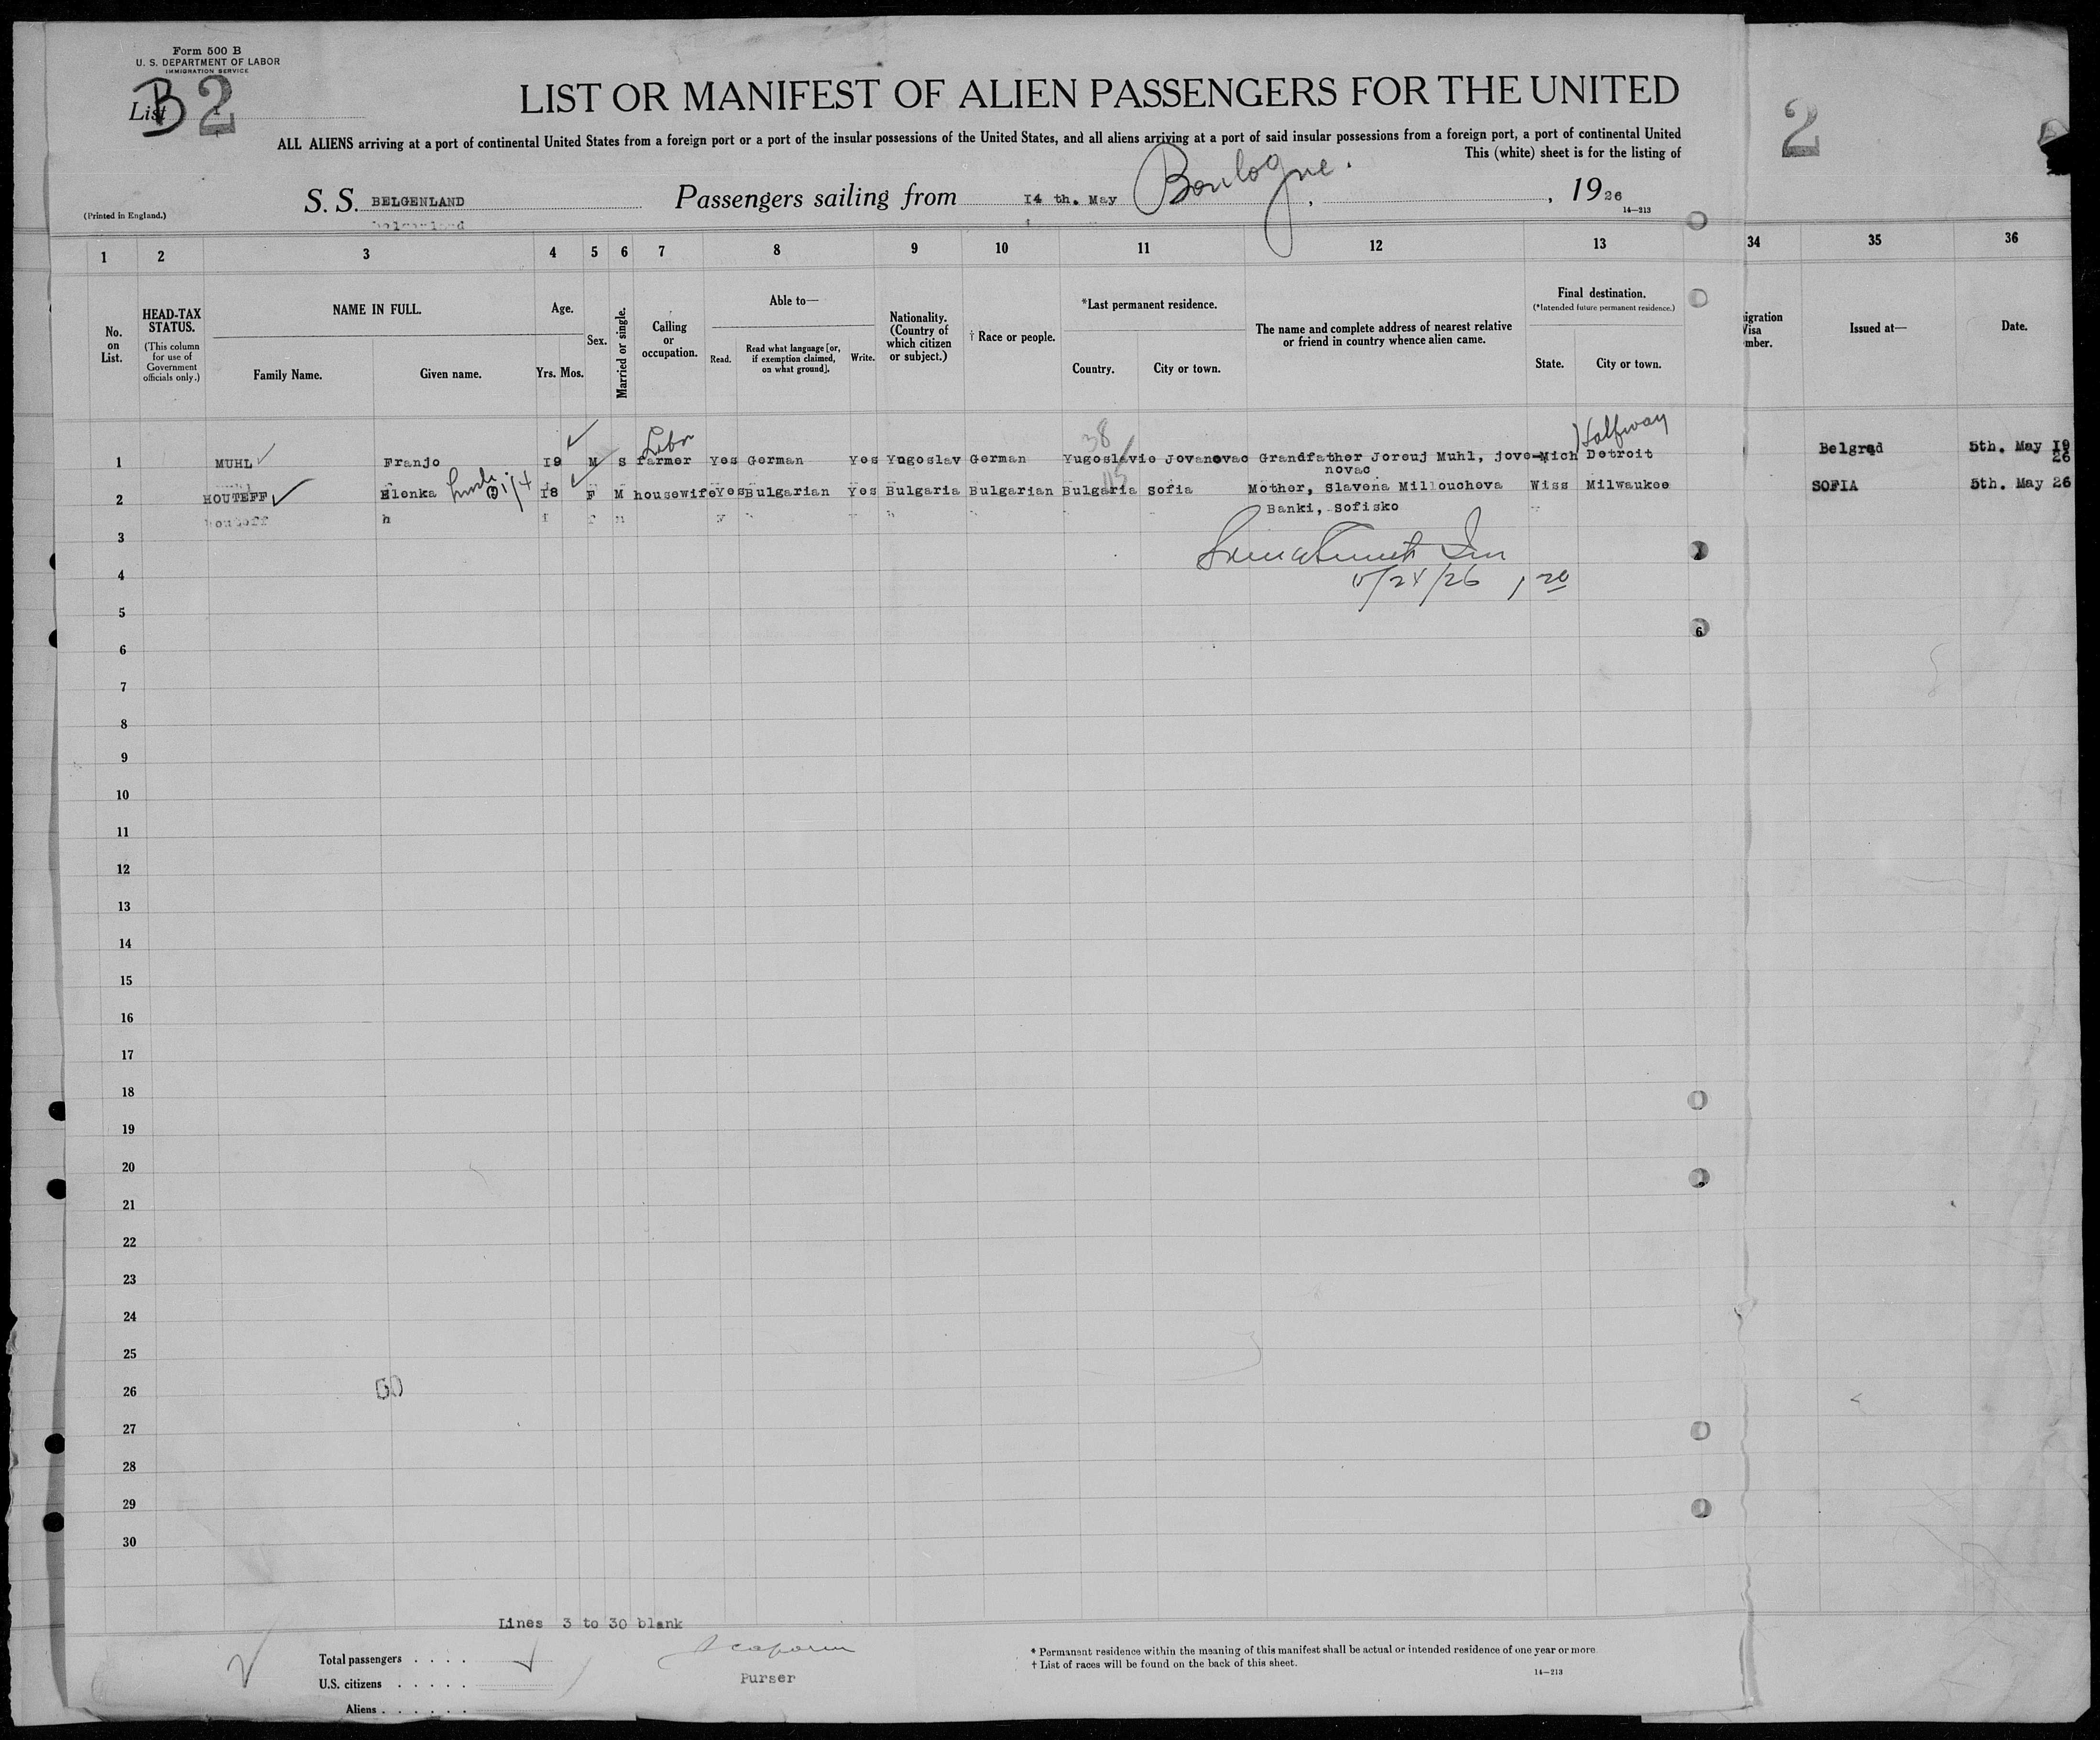 Form 500 B
U. S. DEPARTMENT OF LABOR
IMMIGRATION SERVICE
List B 2
2
LIST OR MANIFEST OF ALIEN PASSENGERS FOR THE UNITED
ALL ALIENS arriving at a port of continental United States from a foreign port or a port of the insular possessions of the United States, and all aliens arriving at a port of said insular possessions from a foreign port, a port of continental United
This (white) sheet is for the listing of
S. S. BELGENLAND Passengers sailing from 14 th. May Boulogne. , , 1926
(Printed in England.)
14—213
1 2 3 4 5 6 7 8 9 10 11 12 13 34 35 36
No. on List.
HEAD-TAX STATUS.
(This column for use of Government officials only.)
NAME IN FULL.
Family Name. Given name.
Age.
Yrs. Mos.
Sex.
Married or single.
Calling or occupation.
Able to—
Read. Read what language [or, if exemption claimed, on what ground]. Write.
Nationality. (Country of which citizen or subject.)
† Race or people.
*Last permanent residence.
Country. City or town.
The name and complete address of nearest relative or friend in country whence alien came.
Final destination.
(*Intended future permanent residence.)
State. City or town.
igration Visa mber.
Issued at—
Date.
38 Halfway
1 MUHL Franjo 19 M S farmer Yes German Yes Yugoslav German Yugoslavie Jovanovac Grandfather Joreuj Muhl, jove- Mich Detroit Belgrad 5th. May 19
novac 26
2 HOUTEFF Elenka 18 F M housewife Yes Bulgarian Yes Bulgaria Bulgarian Bulgaria Sofia Mother, Slavena Milloucheva Wiss Milwaukee SOFIA 5th. May 26
Banki, Sofisko
3
4
5/24/26
5
6
7
8
9
10
11
12
13
14
15
16
17
18
19
20
21
22
23
24
25
26
27
28
29
30
Lines 3 to 30 blank
Total passengers . . . .
U.S. citizens . . . . .
Aliens . . . . . .
Purser
* Permanent residence within the meaning of this manifest shall be actual or intended residence of one year or more
† List of races will be found on the back of this sheet.
14—213